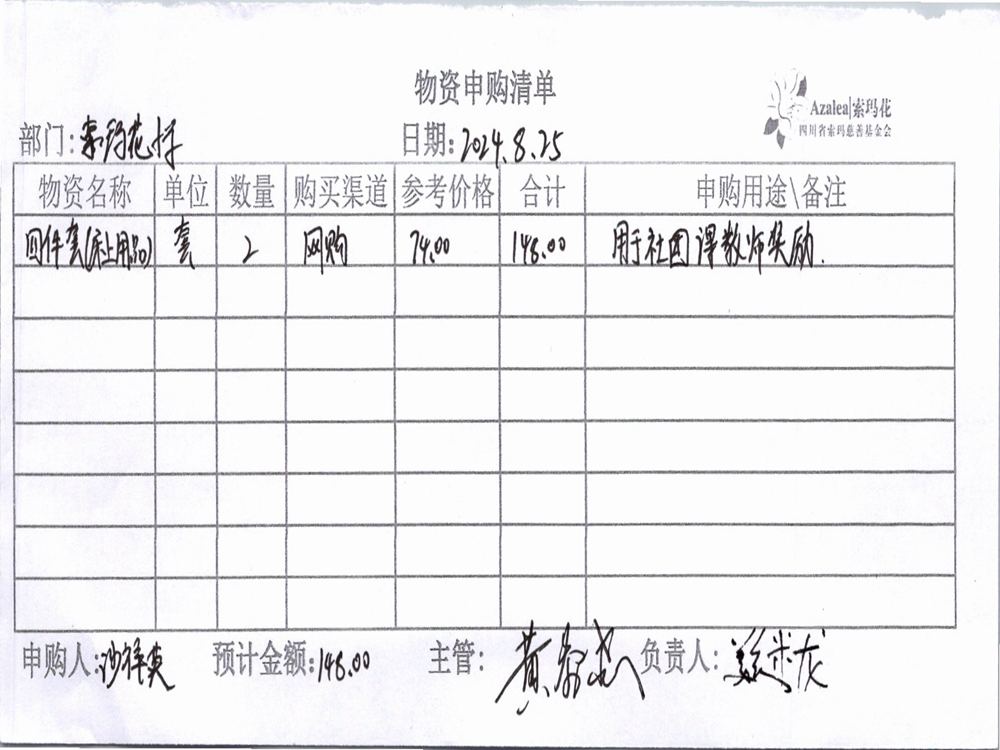 物资申购清单
Azalea|索玛花
四川省索玛慈善基金会
部门:索玛花 日期:2024.8.25
物资名称 单位 数量 购买渠道 参考价格 合计 申购用途\备注
四件套(床上用品) 套 2 网购 74.00 148.00 用于社团课教师奖励.
申购人: 预计金额:148.00 主管: 负责人: